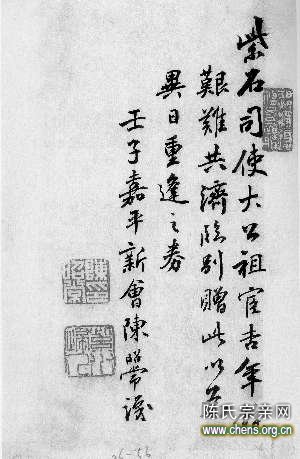 紫石司使大公祖宦吉年
艱難共濟臨別贈此以
異日重逢之券
壬子嘉平新會陳昭常識
陈氏宗亲网
www.chens.org.cn